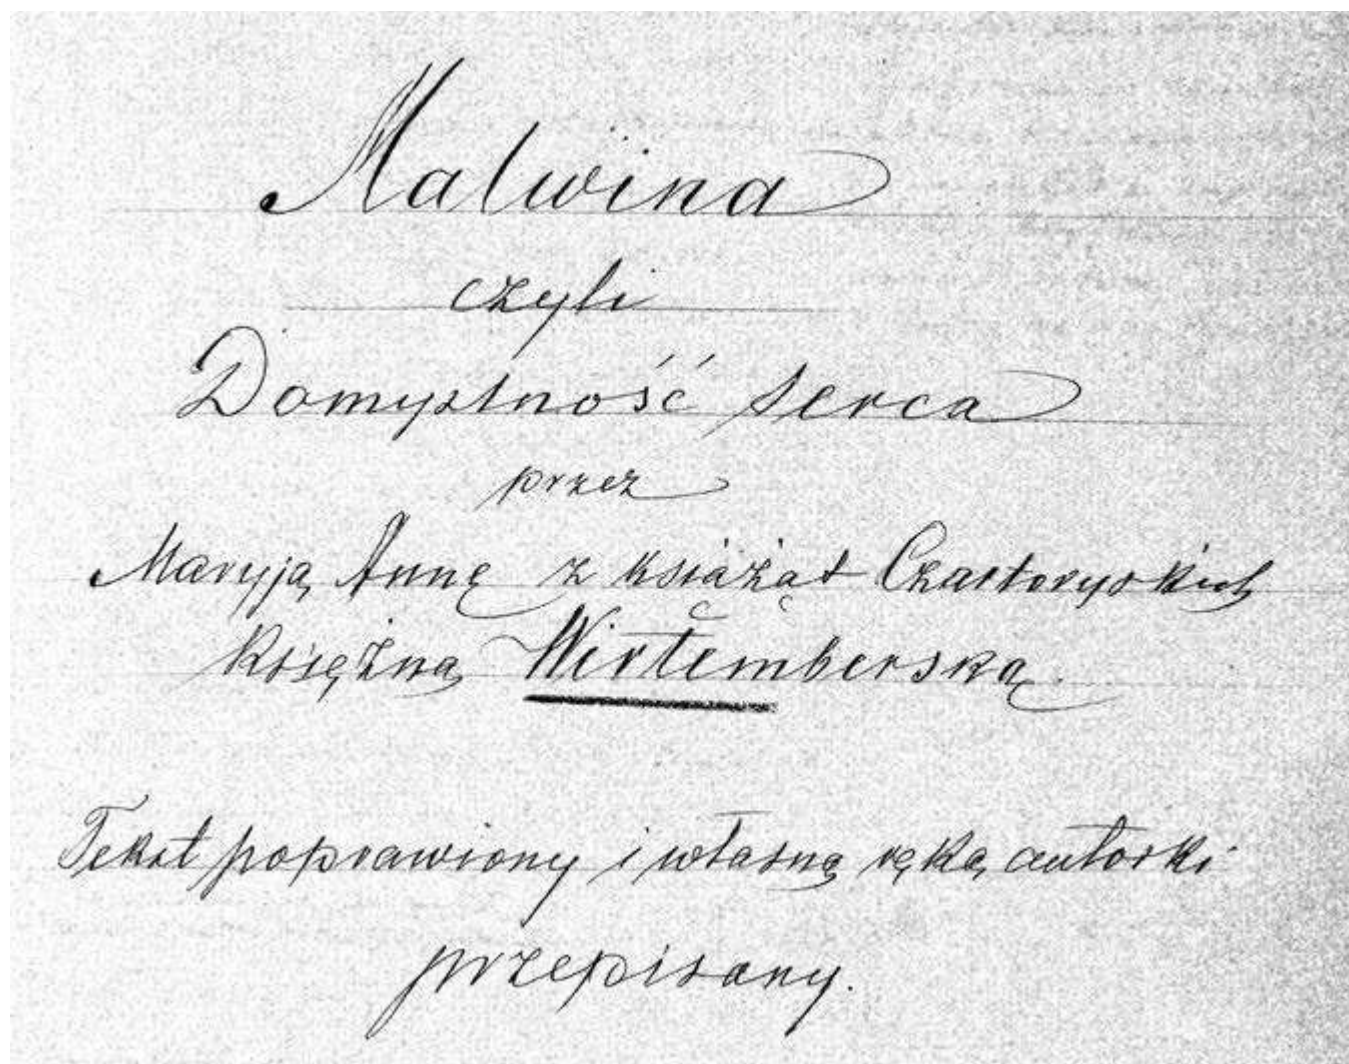 Malwina
czyli
Domyslność serca
przez
Maryją Annę z książąt Czartoryskich
Księżną Wirtemberską.
Tekst poprawiony i własną ręką autorki
przepisany.